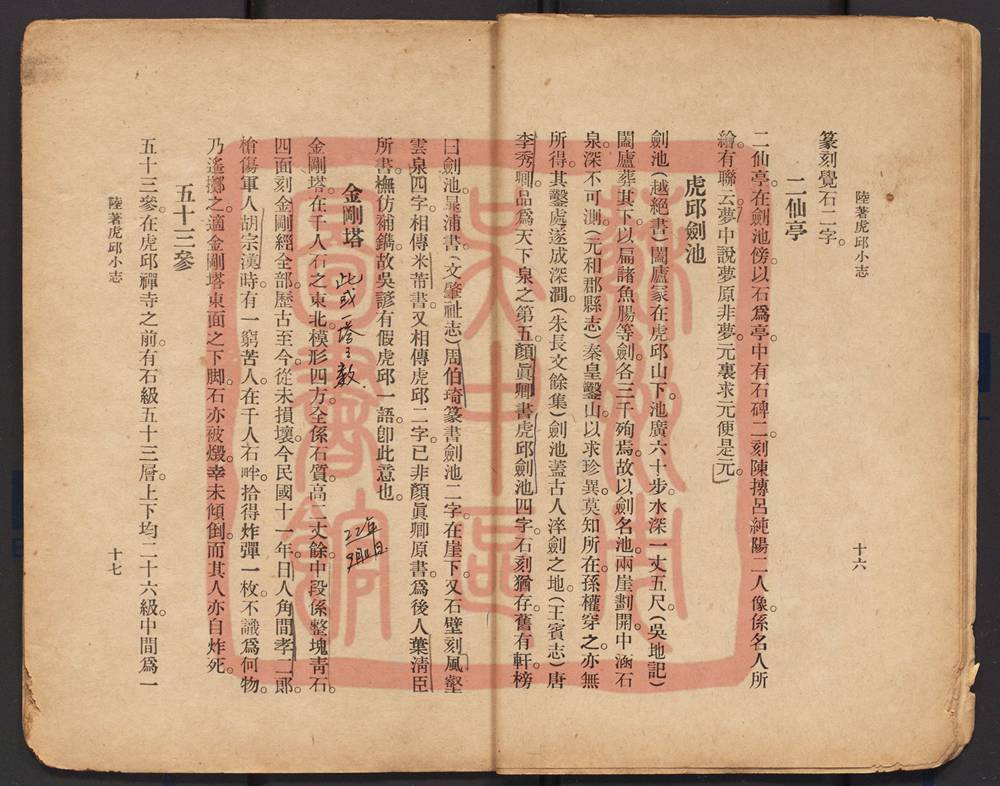 陸著虎邱小志
十六
篆刻覺石二字。
二仙亭
二仙亭。在劍池傍。以石爲亭。中有石碑二。刻陳摶呂純陽二人像。係名人所
繪。有聯云。夢中說夢原非夢。元裏求元便是元。
虎邱劍池
劍池(越絕書)闔廬冢在虎邱山下。池廣六十步。水深一丈五尺。(吳地記)
闔廬葬其下。以扁諸魚腸等劍各三千殉焉。故以劍名池。兩崖劃開。中涵石
泉。深不可測。(元和郡縣志)秦皇鑿山以求珍異。莫知所在。孫權穿之。亦無
所得。其鑿處遂成深澗。(朱長文餘集)劍池蓋古人淬劍之地。(王賓志)唐
李秀卿品爲天下泉之第五。顏眞卿書虎邱劍池四字。石刻猶存。舊有軒。榜
曰劍池。晁浦書。(文肇祉志)周伯琦篆書劍池二字。在崖下。又石壁刻風壑
雲泉四字。相傳米芾書。又相傳虎邱二字。已非顏眞卿原書。爲後人葉淸臣
所書。橅仿補鐫。故吳諺有假虎邱一語。卽此意也。
22年
金剛塔
此或一塔之數
金剛塔。在千人石之東北。模形四方。全係石質。高二丈餘。中段係整塊靑石。
四面刻金剛經全部。歷古至今。從未損壞。今民國十一年。日人角間孝二郎
槍傷軍人胡宗漢時。有一窮苦人。在千人石畔。拾得炸彈一枚。不識爲何物。
乃遙擲之。適金剛塔東面之下脚。石亦被燬。幸未傾倒。而其人亦自炸死。
五十三參
五十三參。在虎邱禪寺之前。有石級五十三層。上下均二十六級。中間爲一
陸著虎邱小志
十七